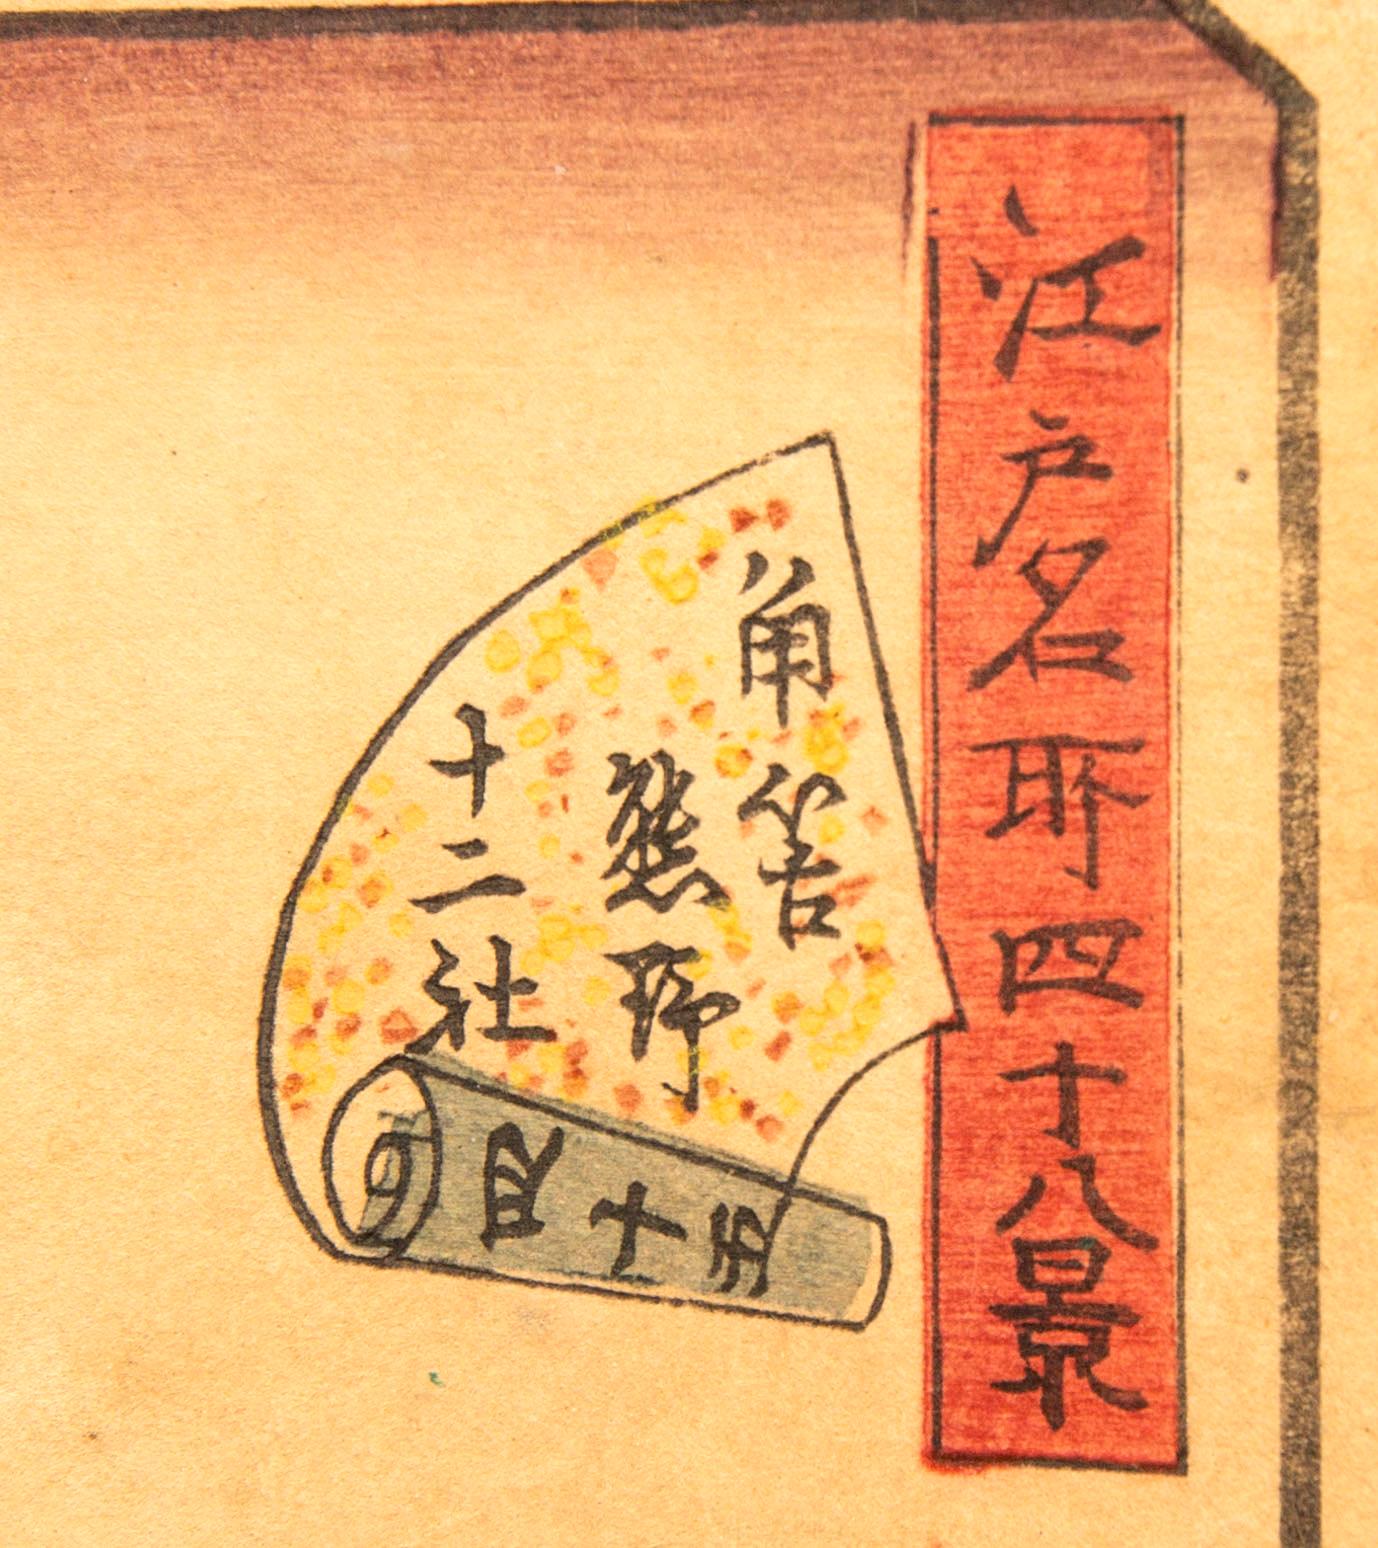 江戸名所四十八景
角筈
熊野
十二社
四十五